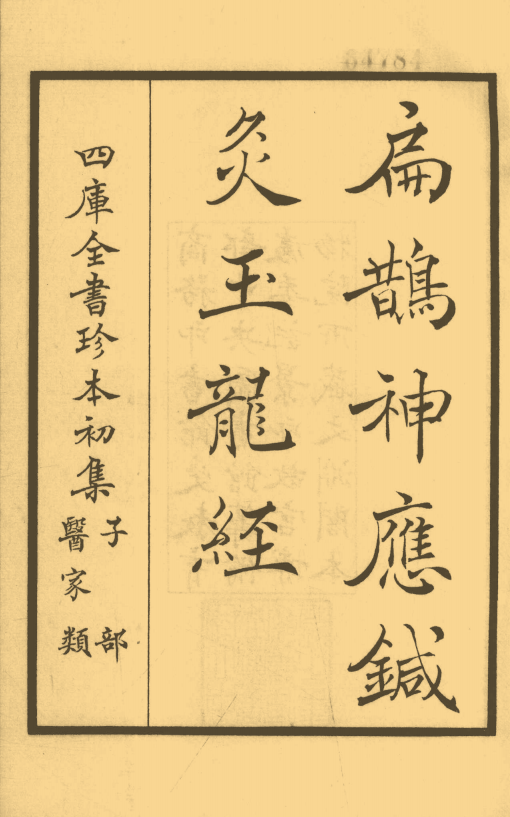 扁鵲神應鍼
灸玉龍経
四庫全書珍本初集
子部
醫家類